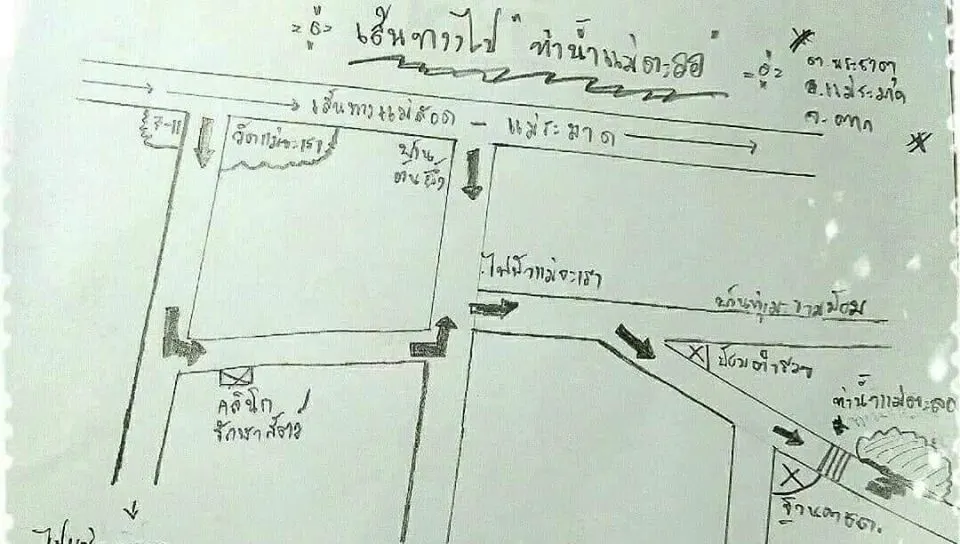 เส้นทางไป "ท่าน้ำแม่ตะลอ"
ต.พระธาตุ
อ.แม่ระมาด
จ.ตาก
เส้นทางแม่สอด - แม่ระมาด
7-11
วัดแม่จะเรา
บ้าน
ต้นผึ้ง
ไฟฟ้าแม่จะเรา
ป้อมตำรวจ
ท่าน้ำแม่ตะลอ
คลินิก
รักษาสัตว์
ฐานตชด.